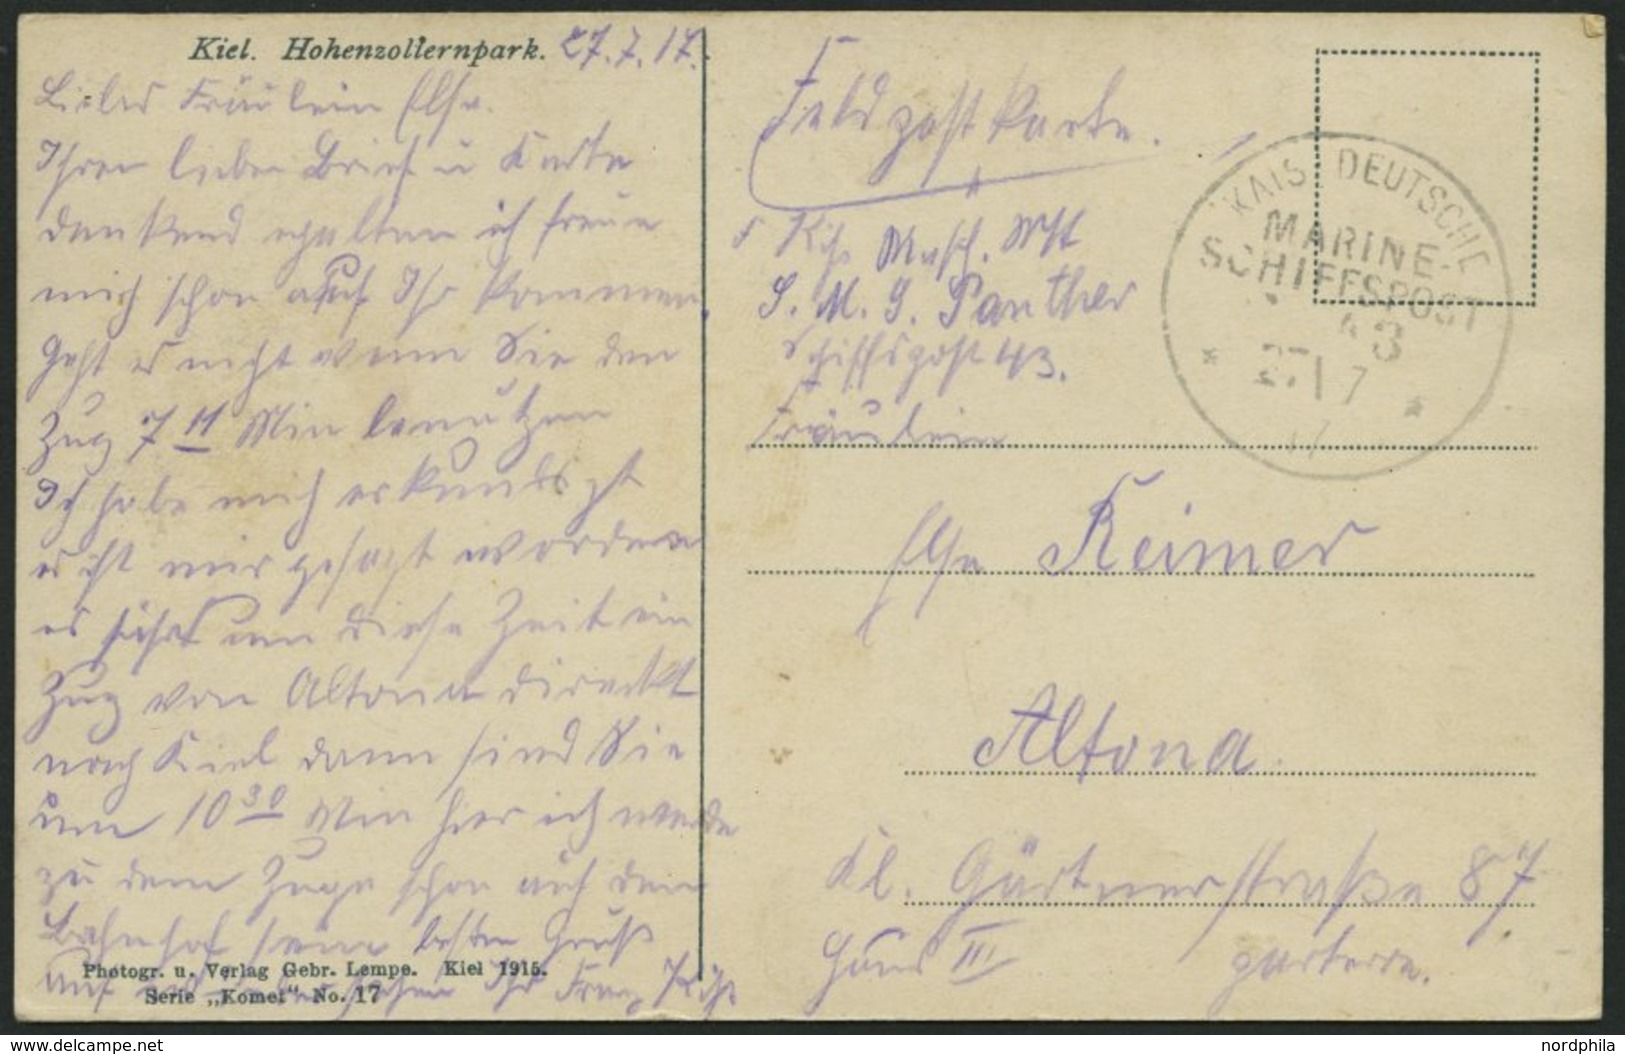 Kiel. Hohenzollernpark. 27.7.17.
Liebes Fräulein Else.
Ihren lieben Brief u Karte
dankend erhalten ich freue
mich schon auf Ihr kommen.
Geht es nicht wenn Sie den
Zug 7 11 Min benutzen
Ich habe mich erkundigt
es ist mir gesagt worden
es fährt um diese Zeit ein
Zug von Altona direckt
nach Kiel dann sind Sie
um 10 30 Min hier ich werde
zu dem Zuge schon auf dem
Bahnhof sein besten Gruß
auf Ihr Franz
Photogr. u. Verlag Gebr. Lempe. Kiel 1915.
Serie „Komet" No. 17
Feldpostkarte.
S. M. S. Panther
Schiffspost 43.
Fräulein
Else Reimer
Altona
Kl. Gärtnerstraße 87
Haus III parterre.
KAIS. DEUTSCHE
MARINE-
SCHIFFSPOST
43
* 27 7 *
17
nordphila
www.delcampe.net